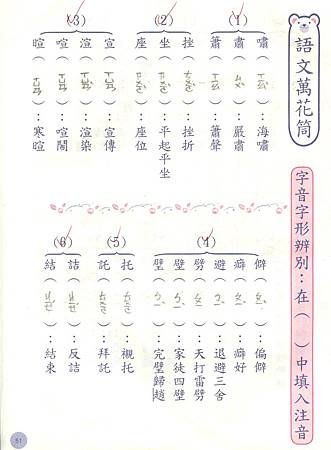 語文萬花筒
字音字形辨別：在（ ）中填入注音
(1)
嘯（ ）：海嘯
肅（ ）：嚴肅
蕭（ ）：蕭聲
(2)
挫（ ）：挫折
坐（ ）：平起平坐
座（ ）：座位
(3)
宣（ ）：宣傳
渲（ ）：渲染
喧（ ）：喧鬧
暄（ ）：寒暄
(4)
僻（ ）：偏僻
癖（ ）：癖好
避（ ）：退避三舍
劈（ ）：天打雷劈
壁（ ）：家徒四壁
璧（ ）：完璧歸趙
(5)
托（ ）：襯托
託（ ）：拜託
(6)
詰（ ）：反詰
結（ ）：結束
51